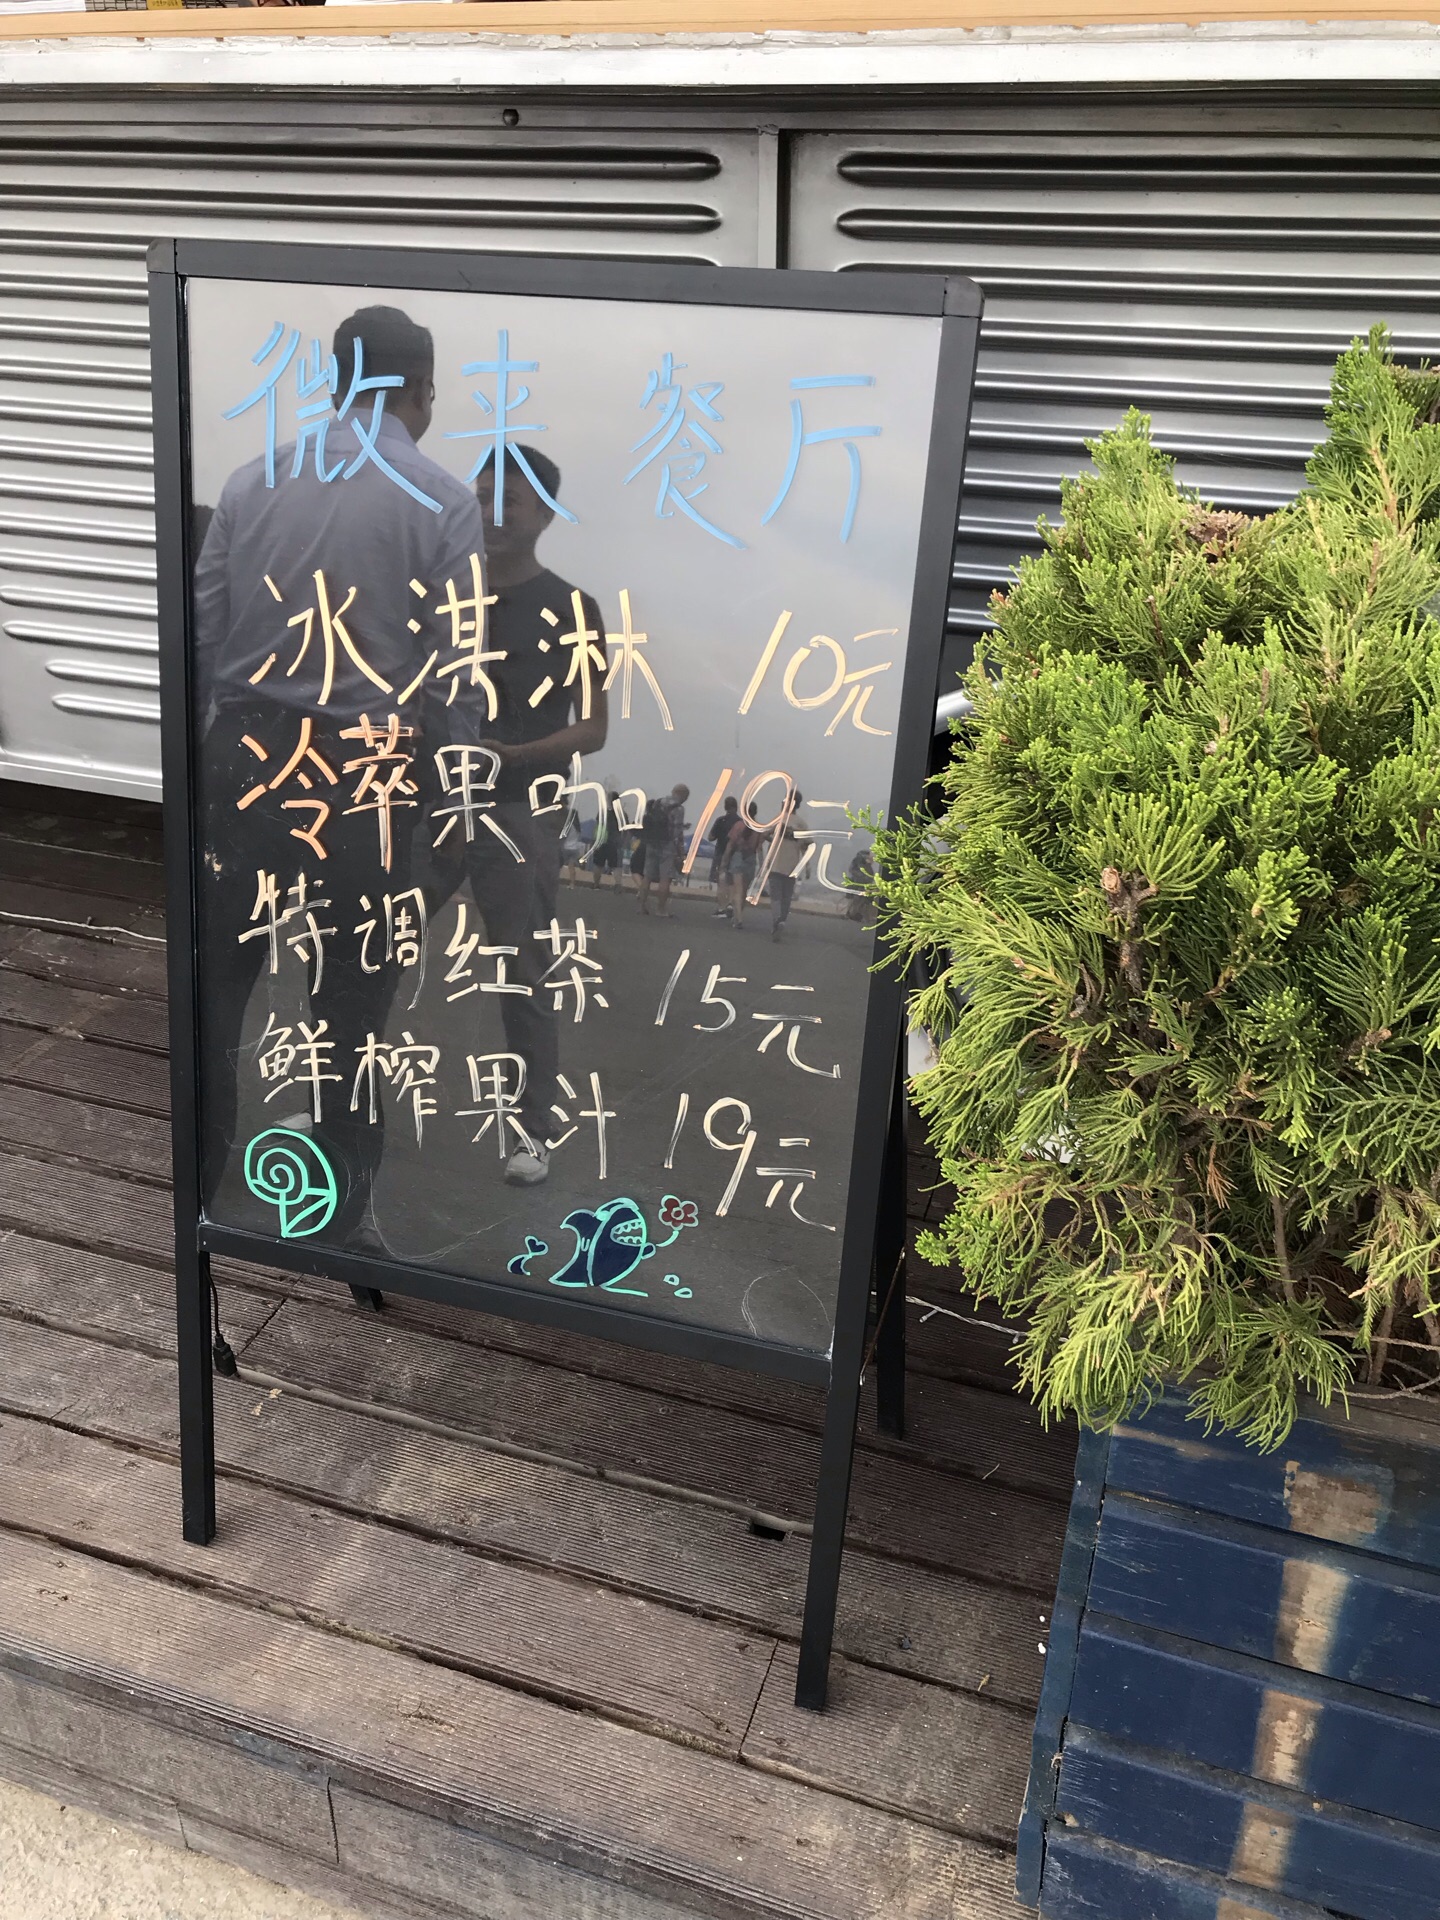 微来餐厅
冰淇淋 10元
冷萃果咖 19元
特调红茶 15元
鲜榨果汁 19元